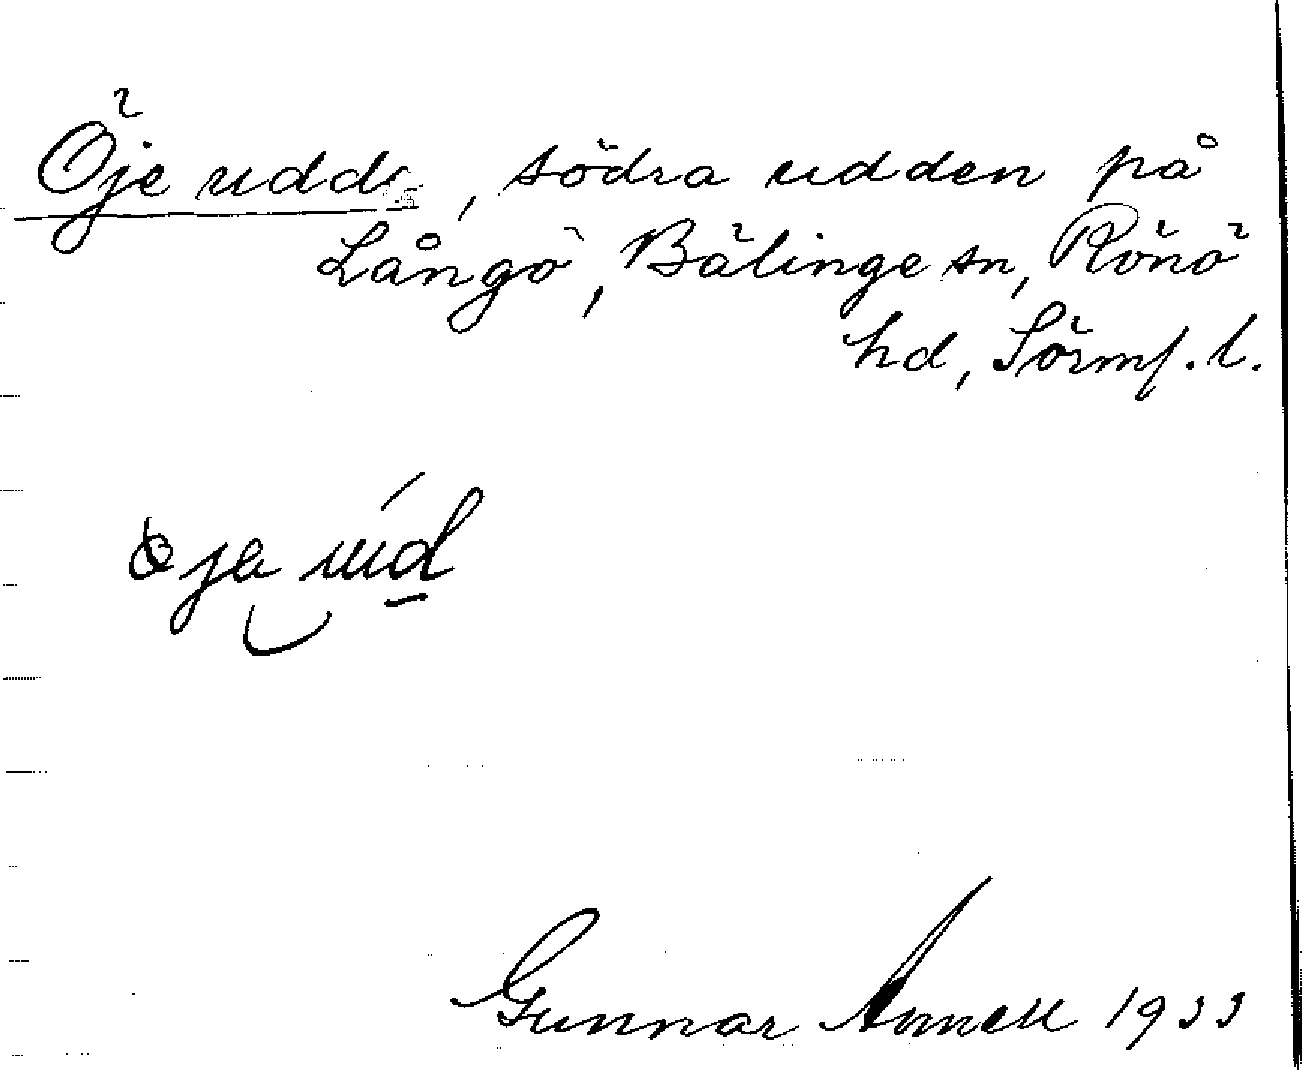 Öje udde, södra udden på
Långö, Bälinge sn, Rönö
hd, Sörml. l.
öja ud
Gunnar Annell 1933